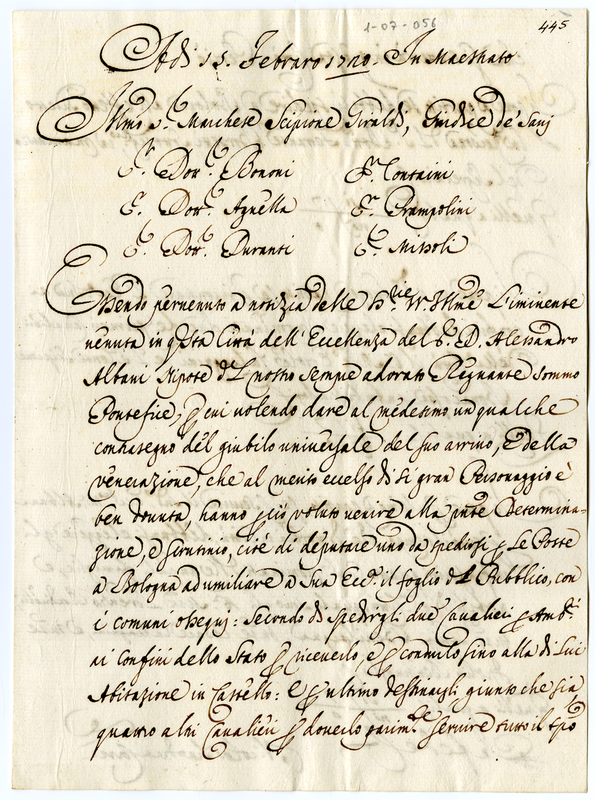 1-07-056
445
Adi 15. Febraro 1720. In Maestrato
Illmo Sr. Marchese Scipione Giraldi, Giudice de' Savj
Sr. Dor. Bononi Sr. Containi
Sr. Dor. Agnella Sr. Prampolini
Sr. Dor. Duranti Sr. Missoli
Essendo pervenuto a notizia delle Srie VV. Illme L'iminente
venuta in qsta Città dell'Eccellenza del Sr. D. Alessandro
Albani Nipote del nostro sempre adorato Regnante sommo
Pontefice; p cui volendo dare al medesimo un qualche
contrasegno del giubilo universale del suo arrivo, e della
venerazione, che al merito eccelso di si gran Personaggio è
ben dovuta, hanno p ciò voluto venire alla pnte Determina-
zione, e scrutinio, cioè di deputare uno da spedirsi p Le Poste
a Bologna ad umiliare a Sua Ecc. il foglio del Pubblico, con
i comuni ossequj: Secondo di spedirgli due Cavalieri p Ambri
ai confini dello Stato p riceverlo, e p condurlo sino alla di Lui
Abitazione in Castello: e p ultimo destinargli giunto che sia
quattro altri Cavalieri p doverlo parimte servire tutto il tpo